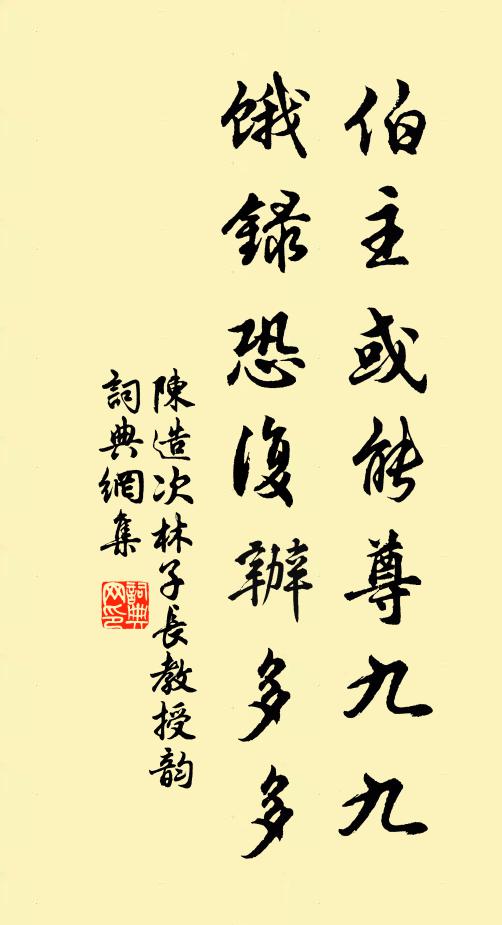 伯主或能尊九九
餓錄恐復辦多多
陳造次林子長教授韵
詞典網集
詞典网印